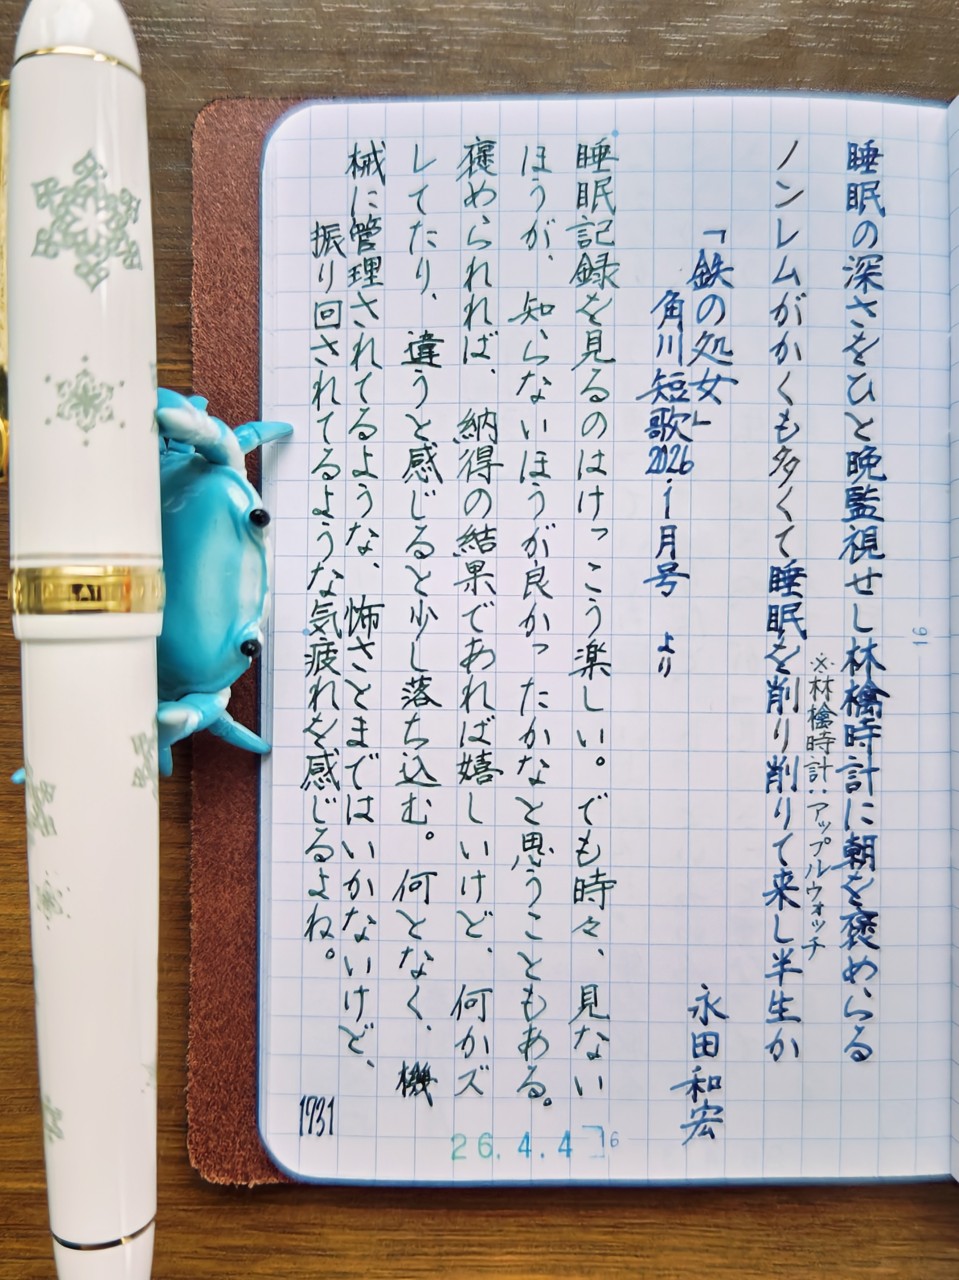 睡眠の深さをひと晩監視せし林檎時計に朝を褒めらる
※林檎時計：アップルウォッチ
ノンレムがかくも多くて睡眠を削り削りて来し半生か
永田和宏
「鉄の処女」
角川短歌2026.1月号 より
睡眠記録を見るのはけっこう楽しい。でも時々、見ない
ほうが、知らないほうが良かったかなと思うこともある。
褒められれば、納得の結果であれば嬉しいけど、何かズ
してたり、違うと感じると少し落ち込む。何となく、機
械に管理されてるような、怖さとまではいかないけど、
振り回されてるような気疲れを感じるよね。
1731
26.4.4
16